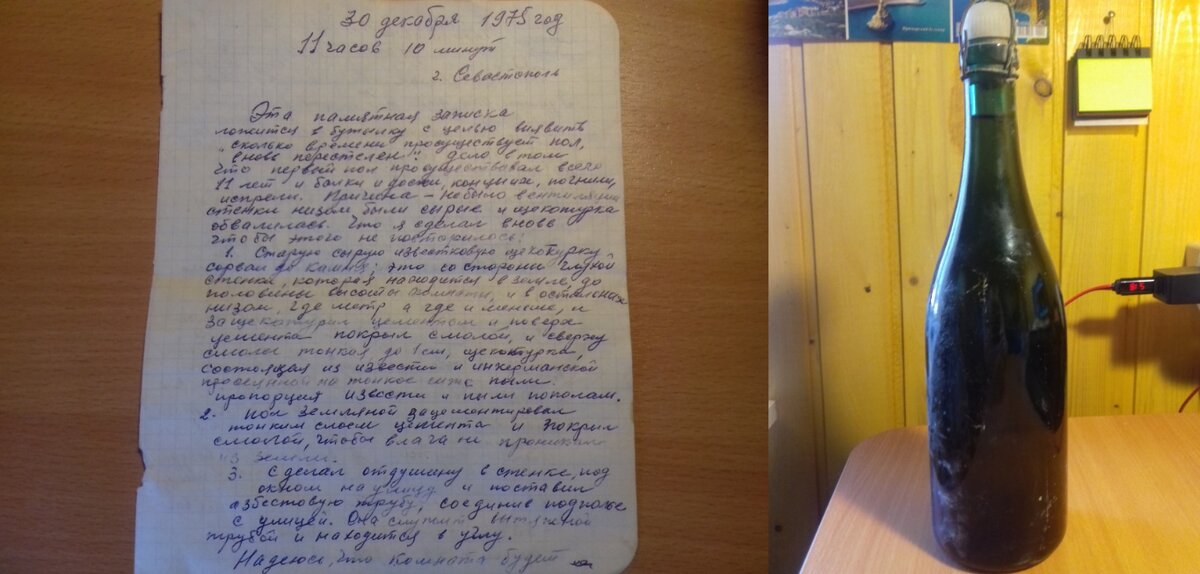 30 декабря 1975 год
11 часов 10 минут
г. Севастополь
Эта памятная записка
ложится в бутылку с целью виявить
"сколько времени просуществует пол,
вновь перестелен". дело в том
что первый пол просуществовал всего
11 лет и балки и доски, концы их, погнили,
испрели. Причина – небыло вентиляции
стенки низом были сырые и щекатурка
обвалилась. Что я сделал вновь
чтобы этого не повторилось:
1. Старую сырую известковую щекотурку
сорвал до камня; это со стороны глухой
стенки, которая находится в земле, до
половины высоты комнаты, и в остальных
низом, где метр а где и меньше, и
защекатурил цементом и поверх
цемента покрыл смолой, и сверху
смолы тонкая, до 1 см, щекотурка,
состоящая из извести и инкерманской
просеянной на тонкое сито пыли.
пропорция извести и пыли пополам.
2. пол земляной зацементировал
тонким слоем цемента и покрыл
смолой, чтобы влага не проникала
из земли.
3. Сделал отдушину в стенке, под
окном на улицу и поставил
азбестовую трубу, соединив подполье
с улицей. Она служит вытяжной
трубой и находится в углу.
Надеюсь, что комната будет